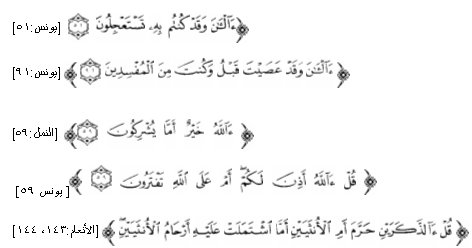 ﴿ ءَآلْـَٰٔنَ وَقَدْ كُنتُم بِهِۦ تَسْتَعْجِلُونَ ۝٥١ ﴾ [يونس:٥١]
﴿ ءَآلْـَٰٔنَ وَقَدْ عَصَيْتَ قَبْلُ وَكُنتَ مِنَ الْمُفْسِدِينَ ۝ ﴾ [يونس:٩١]
﴿ ءَآللَّهُ خَيْرٌ أَمَّا يُشْرِكُونَ ۝ ﴾ [النمل:٥٩]
﴿ قُلْ ءَآللَّهُ أَذِنَ لَكُمْ ۖ أَمْ عَلَى اللَّهِ تَفْتَرُونَ ۝ ﴾ [يونس ٥٩]
﴿ قُلْ ءَآلذَّكَرَيْنِ حَرَّمَ أَمِ الْأُنثَيَيْنِ أَمَّا اشْتَمَلَتْ عَلَيْهِ أَرْحَامُ الْأُنثَيَيْنِ ۖ ﴾ [الأنعام:١٤٣، ١٤٤]